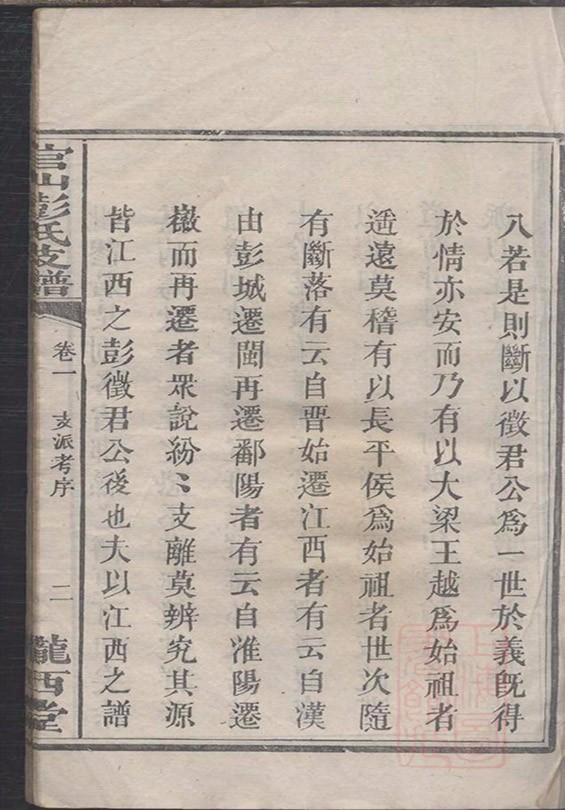 八若是則斷以徵君公爲一世於義旣得
於情亦安而乃有以大梁王越爲始祖者
遥遠莫稽有以長平侯爲始祖者世次隨
有斷落有云自晋始遷江西者有云自漢
由彭城遷閩再遷鄱陽者有云自淮陽遷
徽而再遷者衆說紛〻支離莫辨究其源
皆江西之彭徵君公後也夫以江西之譜
官山彭氏支譜
卷一 支派考序 二 隴西堂